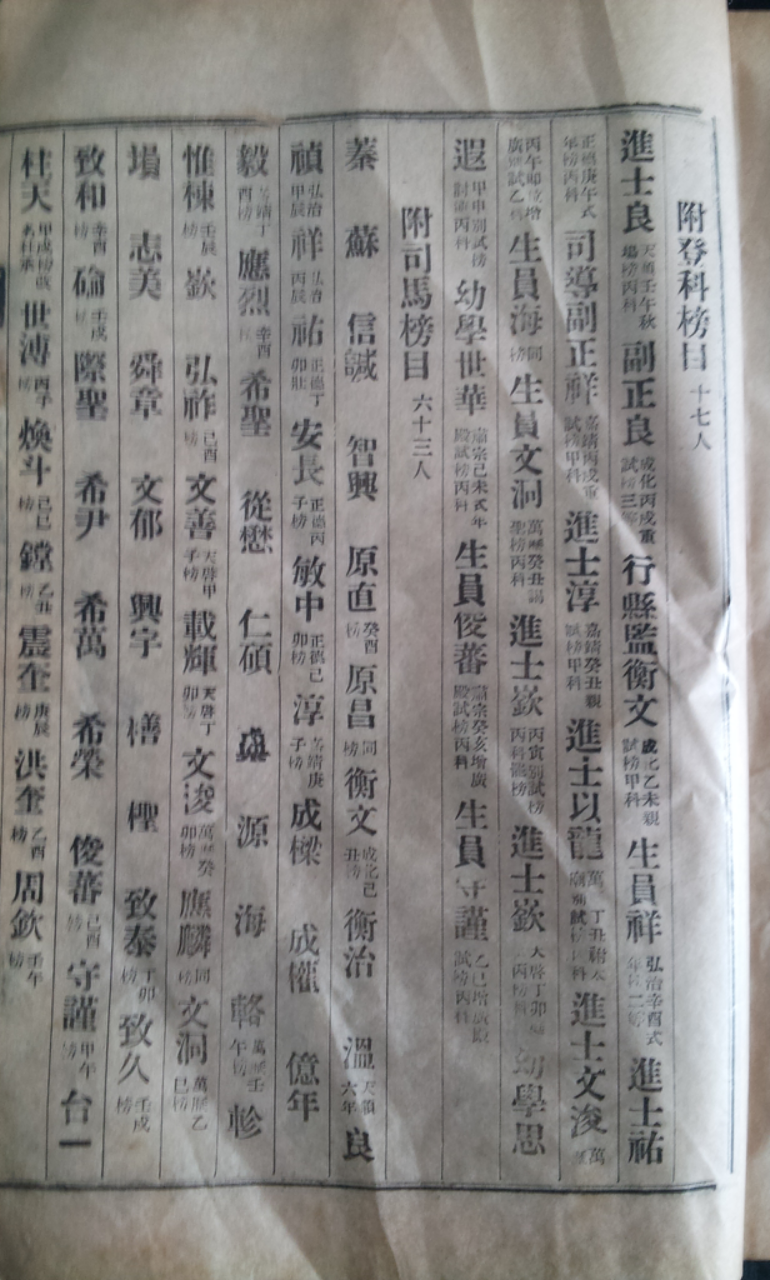 附登科榜目 十七人
進士良 天順壬午秋場榜丙科 副正良 成化丙戌重試榜三等 行縣監衡文 成化乙未親試榜甲科 生員祥 弘治辛酉式年榜二等 進士祐
正德庚午式年榜丙科 司導副正祥 嘉靖丙戌重試榜甲科 進士淳 嘉靖癸丑親試榜甲科 進士以龍 萬 丁丑謝 科 進士文浚 萬
丙午 增廣 試乙科 生員海 同榜 生員文洞 萬曆癸丑謁聖榜丙科 進士嶔 丙寅別試榜丙科 榜 進士嶔 天啓丁卯 丙榜科 幼學思
遐 甲申別試榜 討 丙科 幼學世華 肅宗己未式年殿試榜丙科 生員俊蕃 肅宗癸亥增廣殿試榜丙科 生員守謹 乙巳增廣殿試榜丙科
附司馬榜目 六十三人
蓁 蘇 信誠 智興 原直 癸酉榜 原昌 同榜 衡文 成化己丑榜 衡治 溫 天順六年 良
禎 弘治甲辰 祥 弘治丙辰 祐 正德丁卯 安長 正德丙子榜 敏中 正德己卯榜 淳 嘉靖庚子榜 成樑 成權 億年
毅 嘉靖丁酉榜 應烈 辛酉榜 希聖 從懋 仁碩 源 海 輅 萬曆壬午榜 軫
惟棟 壬辰榜 嶔 弘祚 己酉榜 文善 天啓甲子榜 載輝 天啓丁卯榜 文浚 萬曆癸卯榜 應麟 同榜 文洞 萬曆乙巳榜
塤 志美 舜章 文郁 興宇 榰 檉 致泰 丁卯榜 致久 壬戌榜
致和 辛酉榜 碖 壬戌榜 際聖 希尹 希萬 希榮 俊蕃 己酉榜 守謹 甲午榜 台一
柱天 甲戌榜 名柱 世溥 丙子榜 煥斗 己巳榜 鏜 乙丑榜 震奎 庚辰榜 洪奎 乙酉榜 周欽 壬午榜